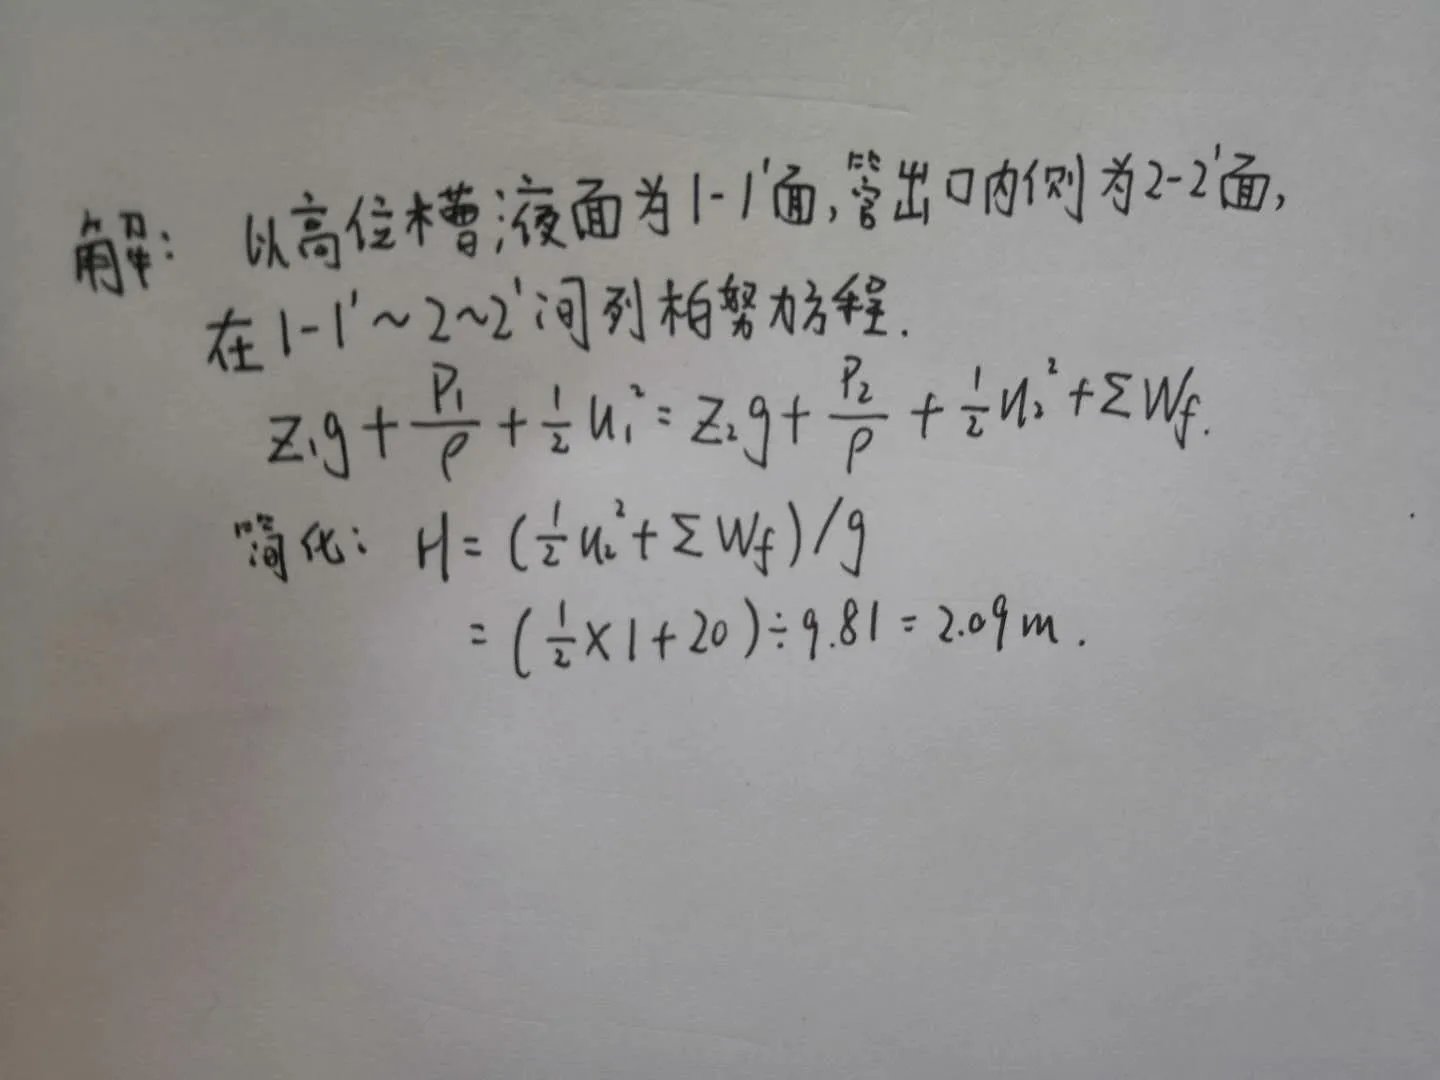 解：以高位槽液面为1-1'面,管出口内侧为2-2'面,
在1-1'~2~2'间列柏努力方程.
Z₁g+P₁/ρ+½u₁²=Z₂g+P₂/ρ+½u₂²+ΣWf.
简化：H=(½u₂²+ΣWf)/g
=(½×1+20)÷9.81=2.09m.